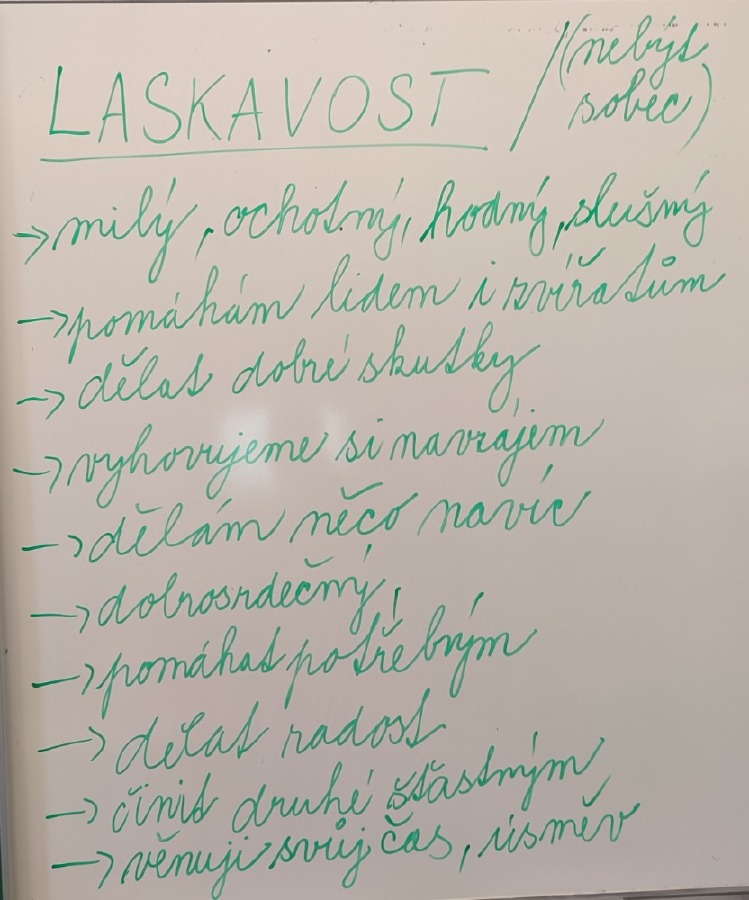 LASKAVOST / (nebýt
sobec)
→ milý, ochotný, hodný, slušný
→ pomáhám lidem i zvířatům
→ dělat dobré skutky
→ vyhovujeme si navzájem
→ dělám něco navíc
→ dobrosrdečný,
→ pomáhat potřebným
→ dělat radost
→ činit druhé šťastným
→ věnuji svůj čas, úsměv